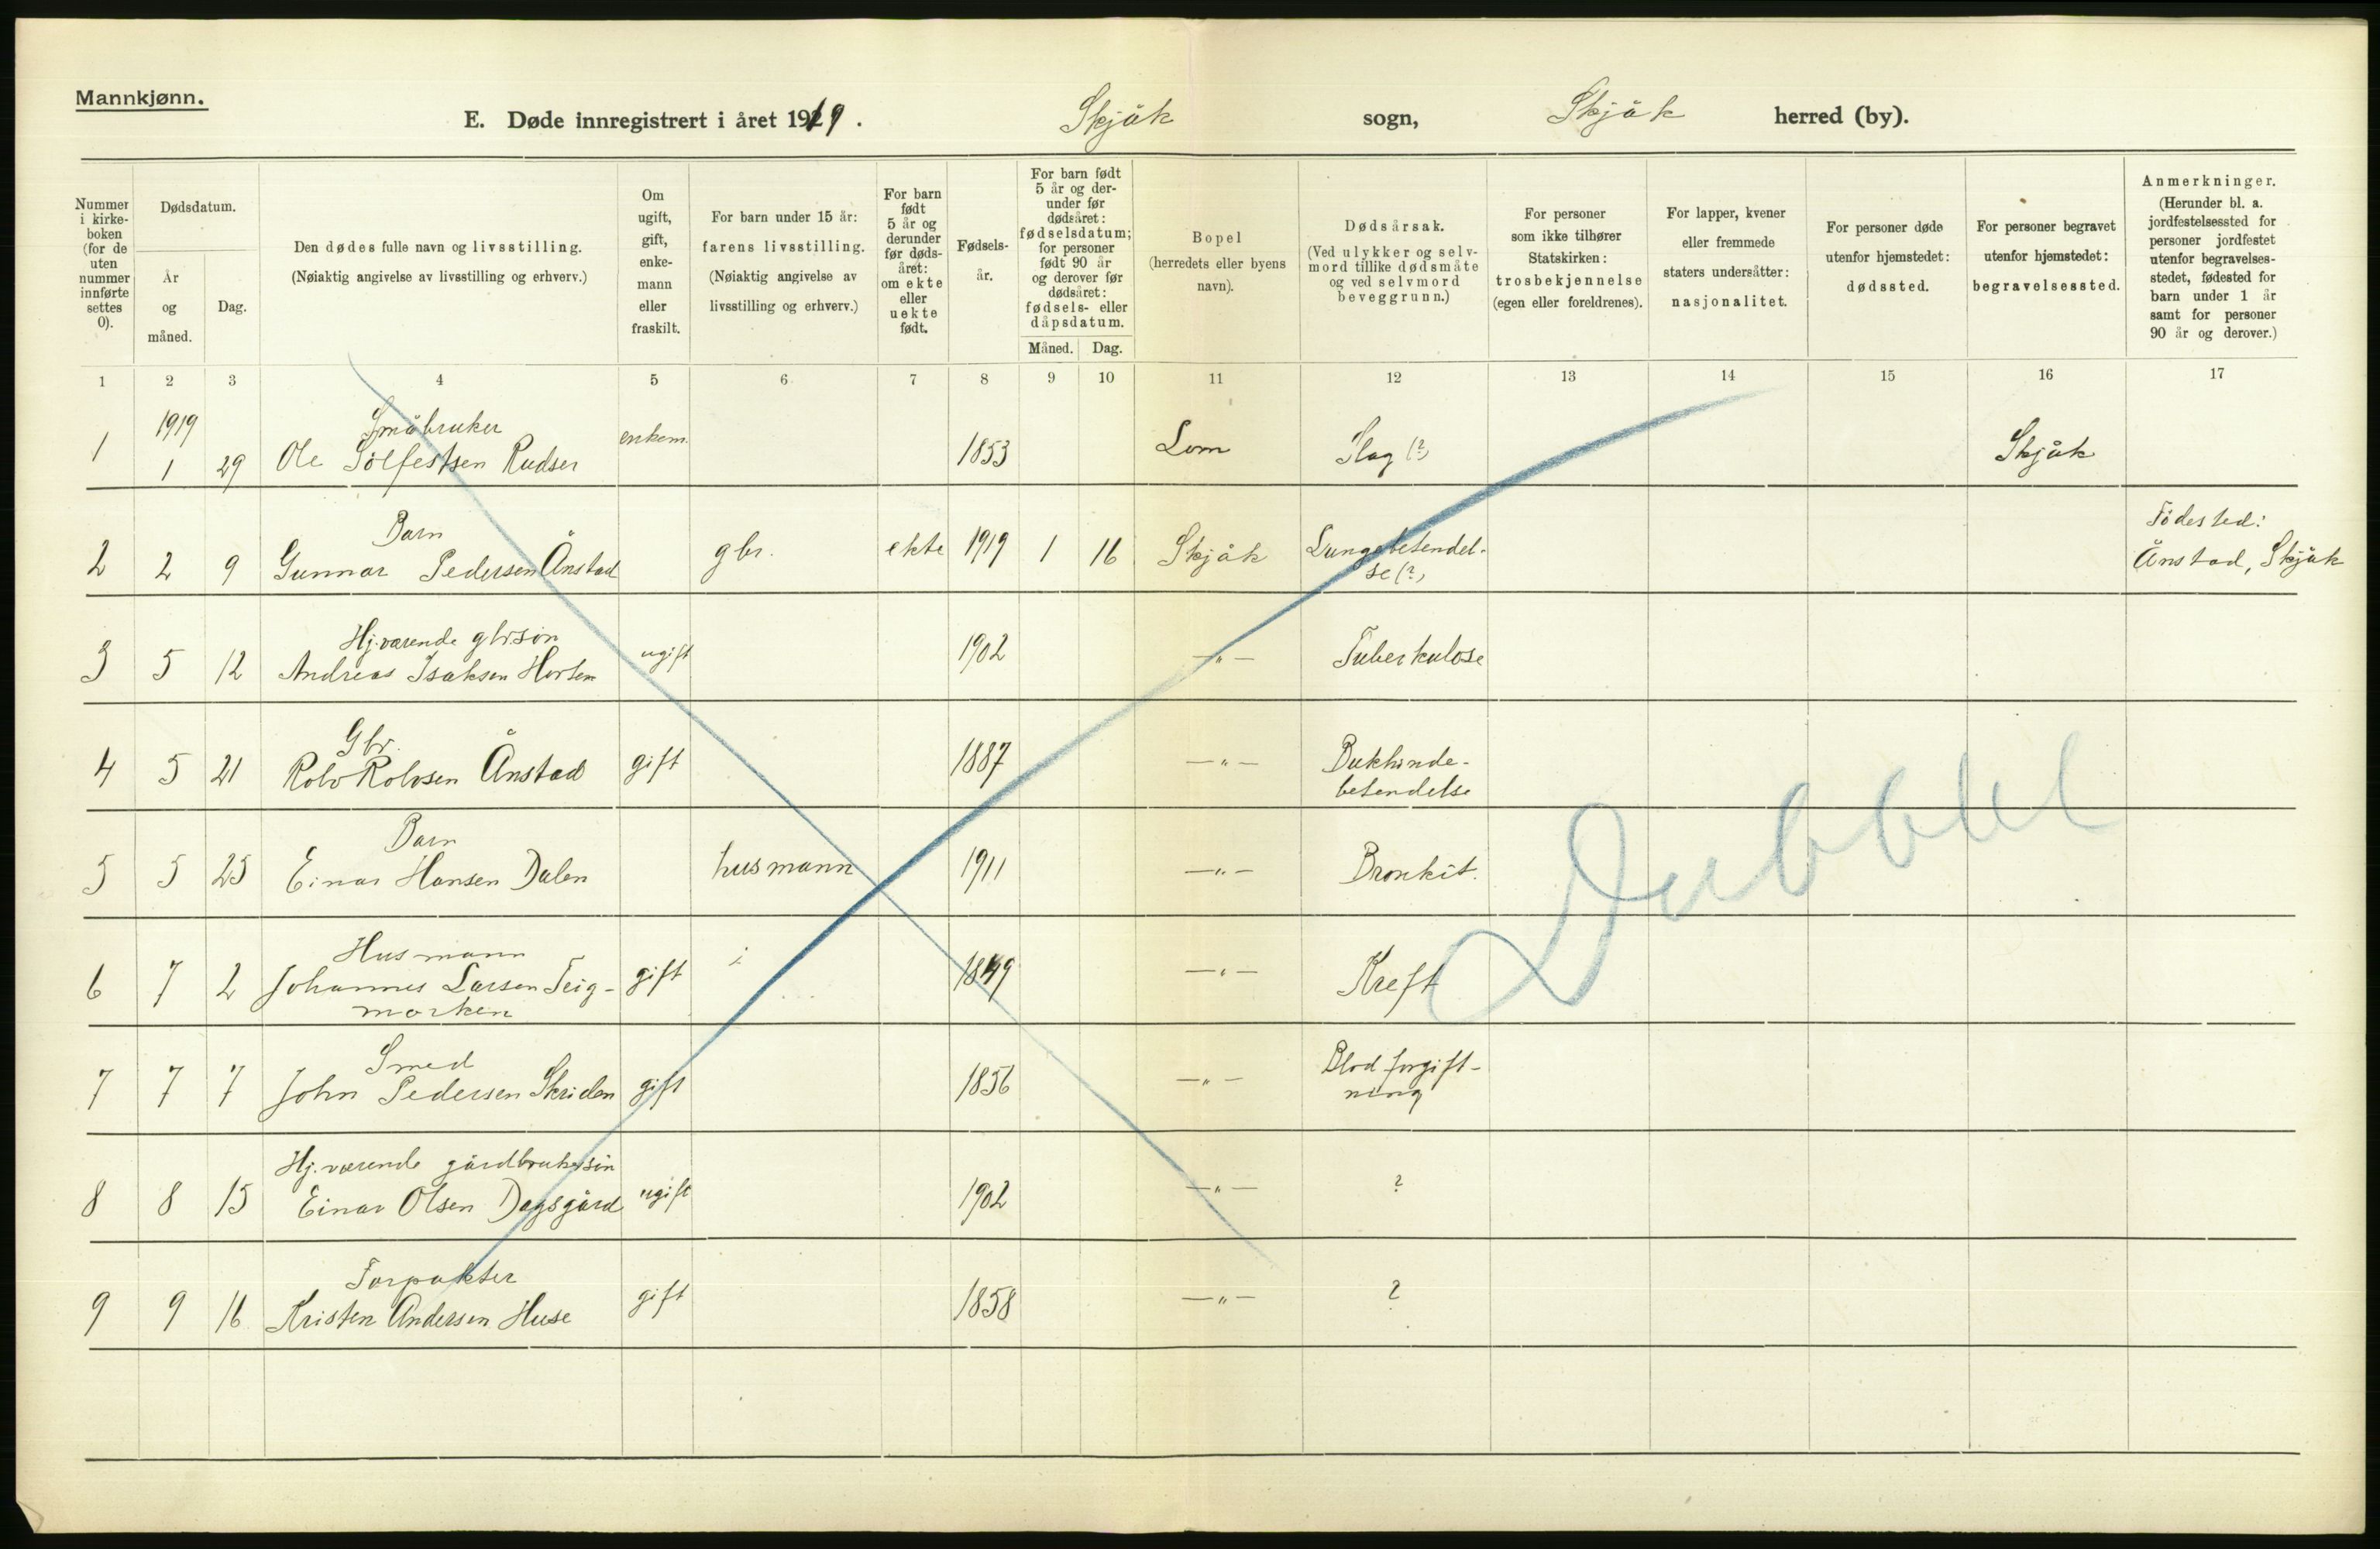 Mannkjønn.
E. Døde innregistrert i året 1919. Skjåk sogn, Skjåk herred (by).
Nummer i kirke-boken (for de uten nummer innførte settes 0).
Dødsdatum.
År og måned.
Dag.
Den dødes fulle navn og livsstilling.
(Nøiaktig angivelse av livsstilling og erhverv.)
Om ugift, gift, enke-mann eller fraskilt.
For barn under 15 år: farens livsstilling.
(Nøiaktig angivelse av livsstilling og erhverv.)
For barn født 5 år og derunder før døds-året: om ekte eller uekte født.
Fødsels-år.
For barn født 5 år og der-under før dødsåret: fødselsdatum; for personer født 90 år og derover før dødsåret: fødsels- eller dåpsdatum.
Måned. Dag.
Bopel (herredets eller byens navn).
Dødsårsak. (Ved ulykker og selv-mord tillike dødsmåte og ved selvmord beveggrunn.)
For personer som ikke tilhører Statskirken: trosbekjennelse (egen eller foreldrenes).
For lapper, kvener eller fremmede staters undersåtter: nasjonalitet.
For personer døde utenfor hjemstedet: dødssted.
For personer begravet utenfor hjemstedet: begravelsessted.
Anmerkninger. (Herunder bl. a. jordfestelsessted for personer jordfestet utenfor begravelses-stedet, fødested for barn under 1 år samt for personer 90 år og derover.)
1 2 3 4 5 6 7 8 9 10 11 12 13 14 15 16 17
1919 Småbruker
1 1 29 Ole Sölfestsen Rudser enkem. 1853 Lom Slag (?) Skjåk
Barn Födested:
2 2 9 Gunnar Pedersen Ånstad gbr. ekte 1919 1 16 Skjåk Lungebetendel-se (?) Ånstad, Skjåk
Hj.værende gbr.sön
3 5 12 Andreas Isaksen Horten ugift 1902 —"— Tuberkulose
Gbr.
4 5 21 Rolv Rolvsen Ånstad gift 1887 —"— Bukhinde-betendelse
Barn
5 5 25 Einar Hansen Dalen husmann 1911 —"— Bronkit.
Husmann
6 7 2 Johannes Larsen Teig-marken gift 1849 —"— Kreft
Smed
7 7 7 John Pedersen Skriden gift 1856 —"— Blodforgift-ning
Hj.værende gårdbrukersön
8 8 15 Einar Olsen Dagsgård ugift 1902 —"— ?
Forpakter
9 9 16 Kristen Andersen Huse gift 1858 —"— ?
Dubbel